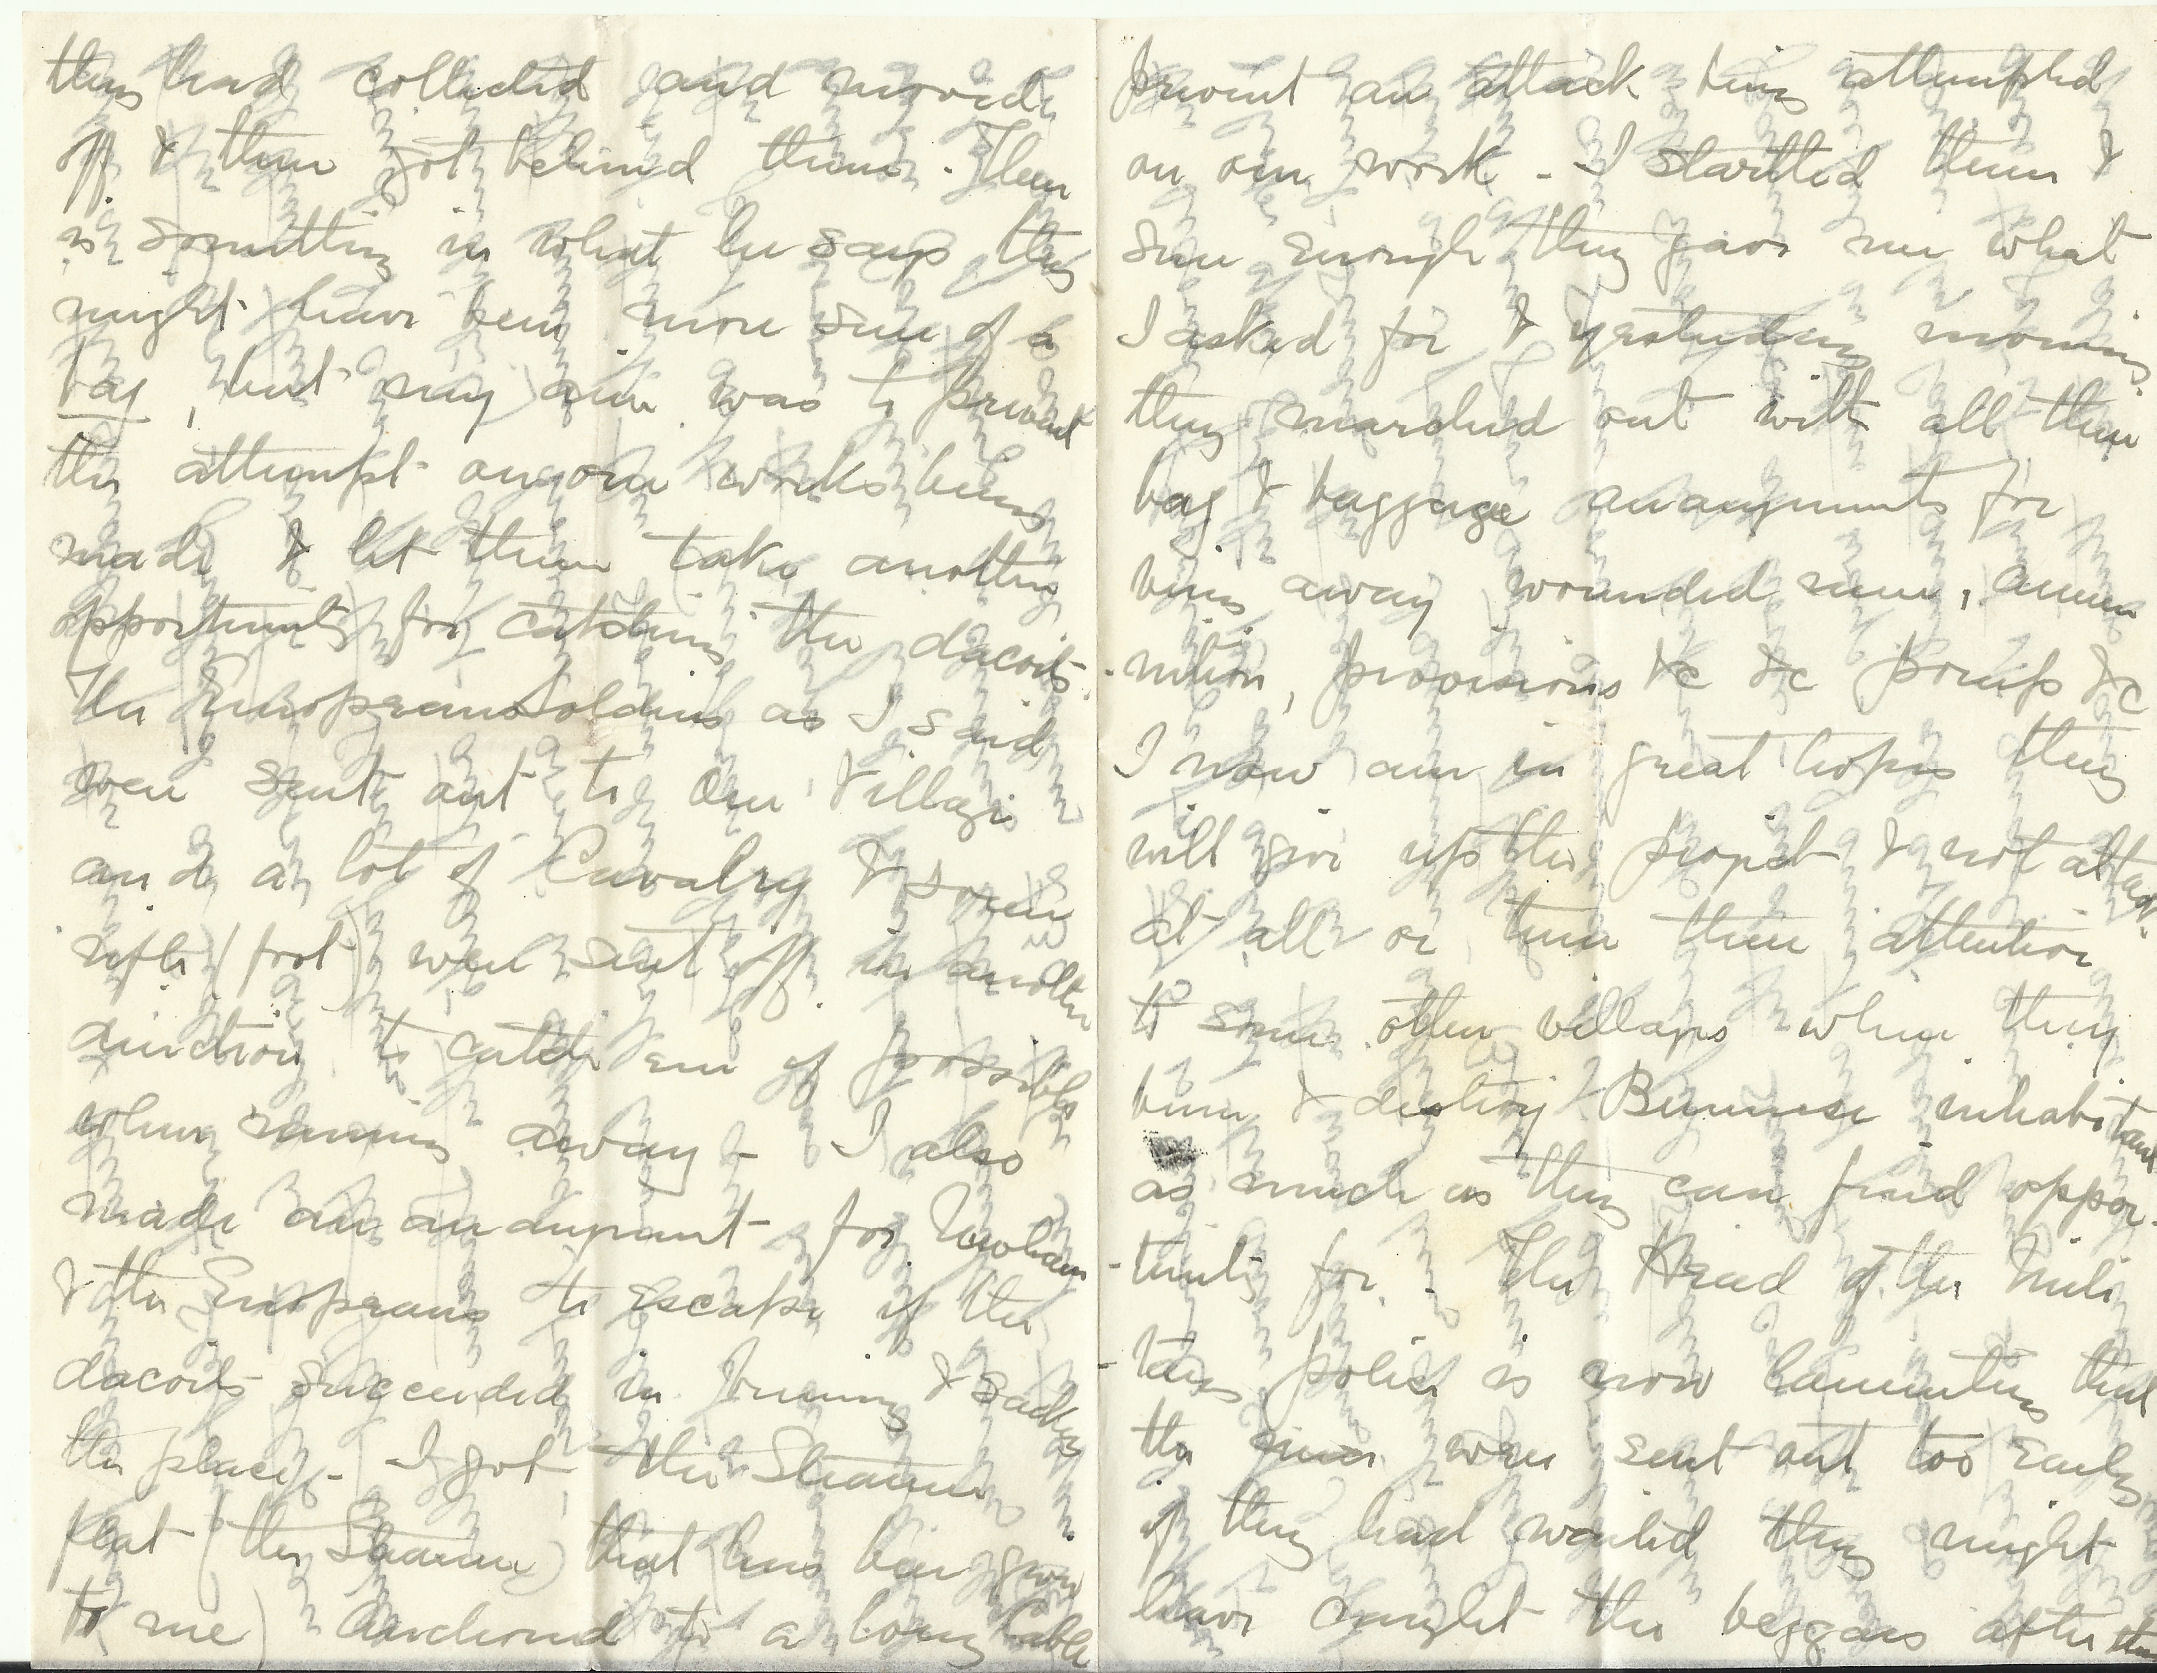 they had collected and moved
off & then got behind them. There
is something in what he says they
might have been more sure of a
bag, but my aim was to prevent
the attempt on our works being
made & let them take another
opportunity for catching the dacoits.
The European Soldiers as I said
were sent out to our village
and a lot of Cavalry & some
rifles (foot) were sent off in another
direction to catch em if possible
when running away - I also
made an arrangement for
& the Europeans to escape if the
dacoits succeeded in burning & sacking
the place. - I got the Steamer
flat (the Steamer) that has been given
to me) anchored to a long Cable
prevent an attack being attempted
on our work - I startled them &
sure enough they gave me what
I asked for & yesterday morning
they marched out with all their
bag & baggage arrangements for
bring away wounded men, ammu
-nition, provisions &c &c &c
I now am in great hopes they
will give up the project & not attack
at all or turn their attention
to some other villages where they
burn & destroy Burmese inhabitants
as much as they can find oppor-
-tunity for. - The Head of the Mili
-tary police is now lamenting that
the men were sent out too early
if they had waited they might
have caught the beggars after they